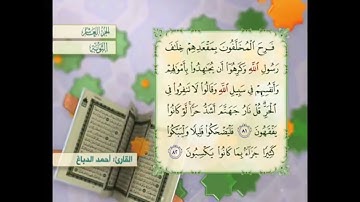 الجزء العاشر
التوبة
فَرِحَ ٱلْمُخَلَّفُونَ بِمَقْعَدِهِمْ خِلَٰفَ
رَسُولِ ٱللَّهِ وَكَرِهُوٓا۟ أَن يُجَٰهِدُوا۟ بِأَمْوَٰلِهِمْ
وَأَنفُسِهِمْ فِى سَبِيلِ ٱللَّهِ وَقَالُوا۟ لَا تَنفِرُوا۟ فِى
ٱلْحَرِّ قُلْ نَارُ جَهَنَّمَ أَشَدُّ حَرًّا لَّوْ كَانُوا۟
يَفْقَهُونَ ٨١ فَلْيَضْحَكُوا۟ قَلِيلًا وَلْيَبْكُوا۟
كَثِيرًا جَزَآءًۢ بِمَا كَانُوا۟ يَكْسِبُونَ ٨٢
القارئ: أحمد الدباغ